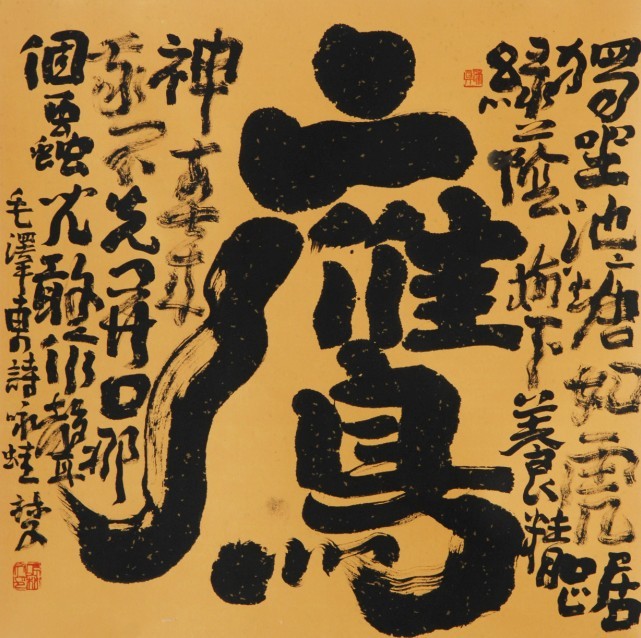 獨坐池塘如虎踞
綠蔭樹下養精
鷹
神春來
我不先開口那
個蟲兒敢作聲
毛澤東詩詠蛙 楚人